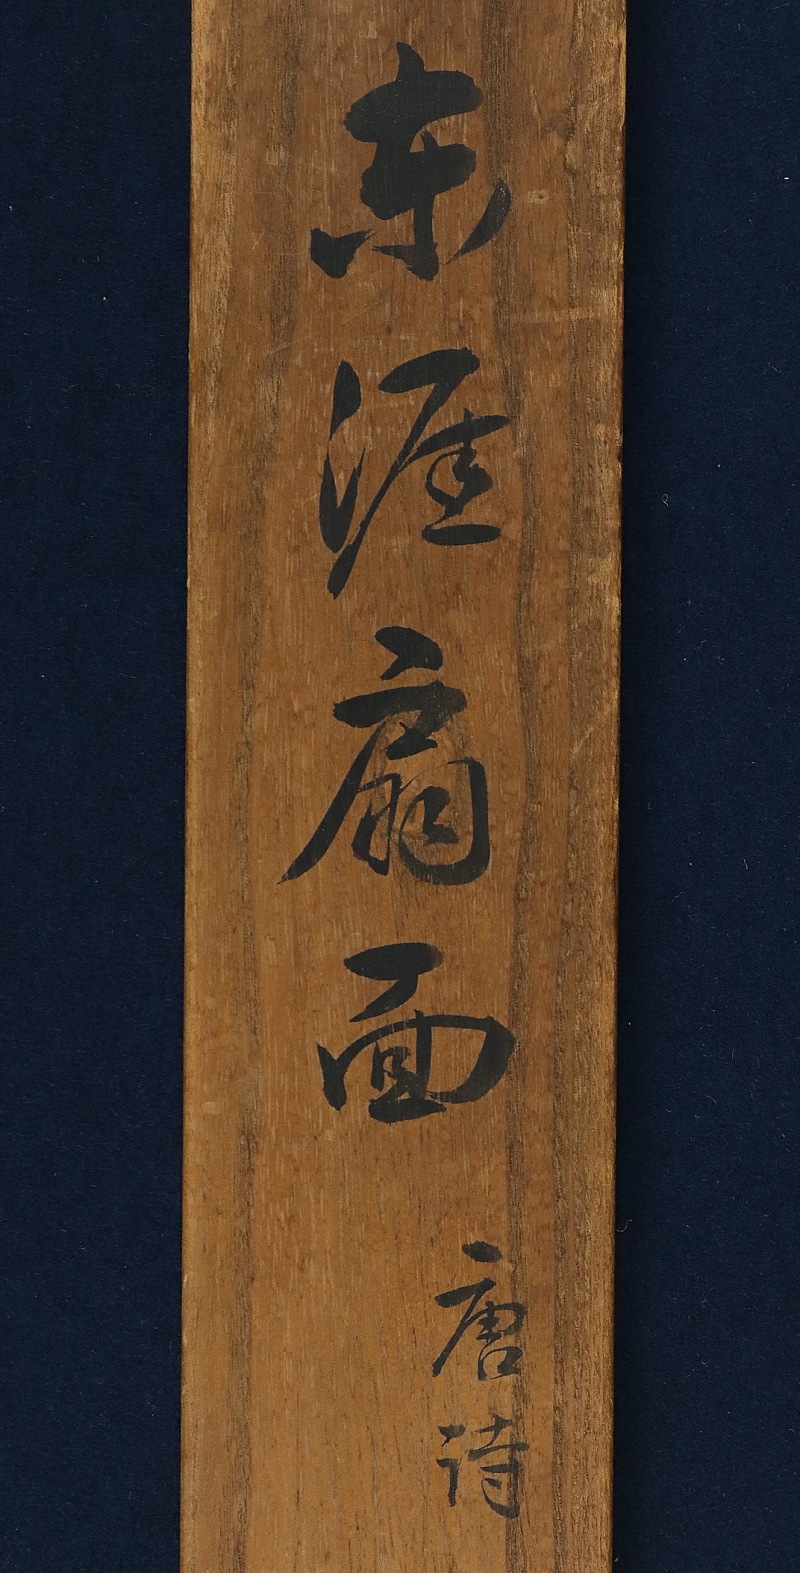 東涯扇面
唐詩